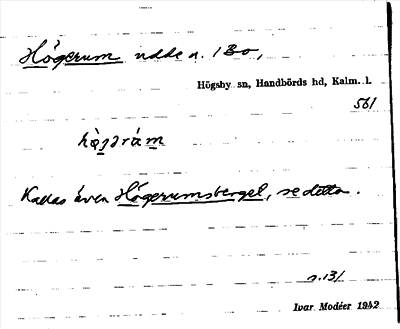 Högerum udde n. 1 Bo,
Högsby sn, Handbörds hd, Kalm. l.
561
Kallas även Högerumsberget, se detta.
s. 131
Ivar Modéer 1942